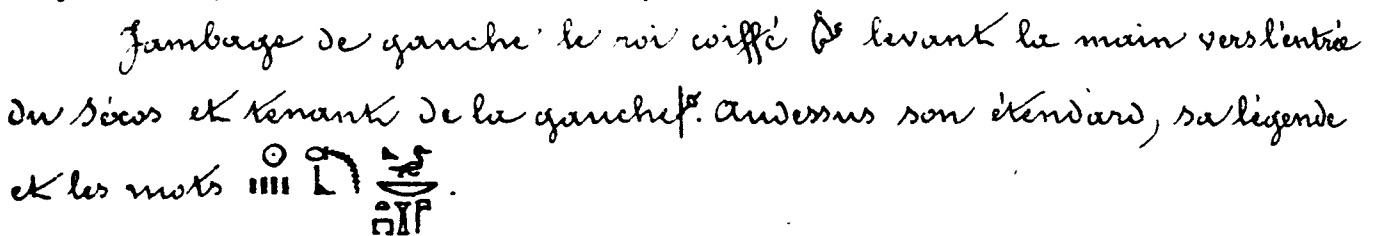 Jambage de gauche le roi coiffé levant la main vers l'entrée
du Sécos et tenant de la gauche. Audessus son étendard, sa légende
et les mots .